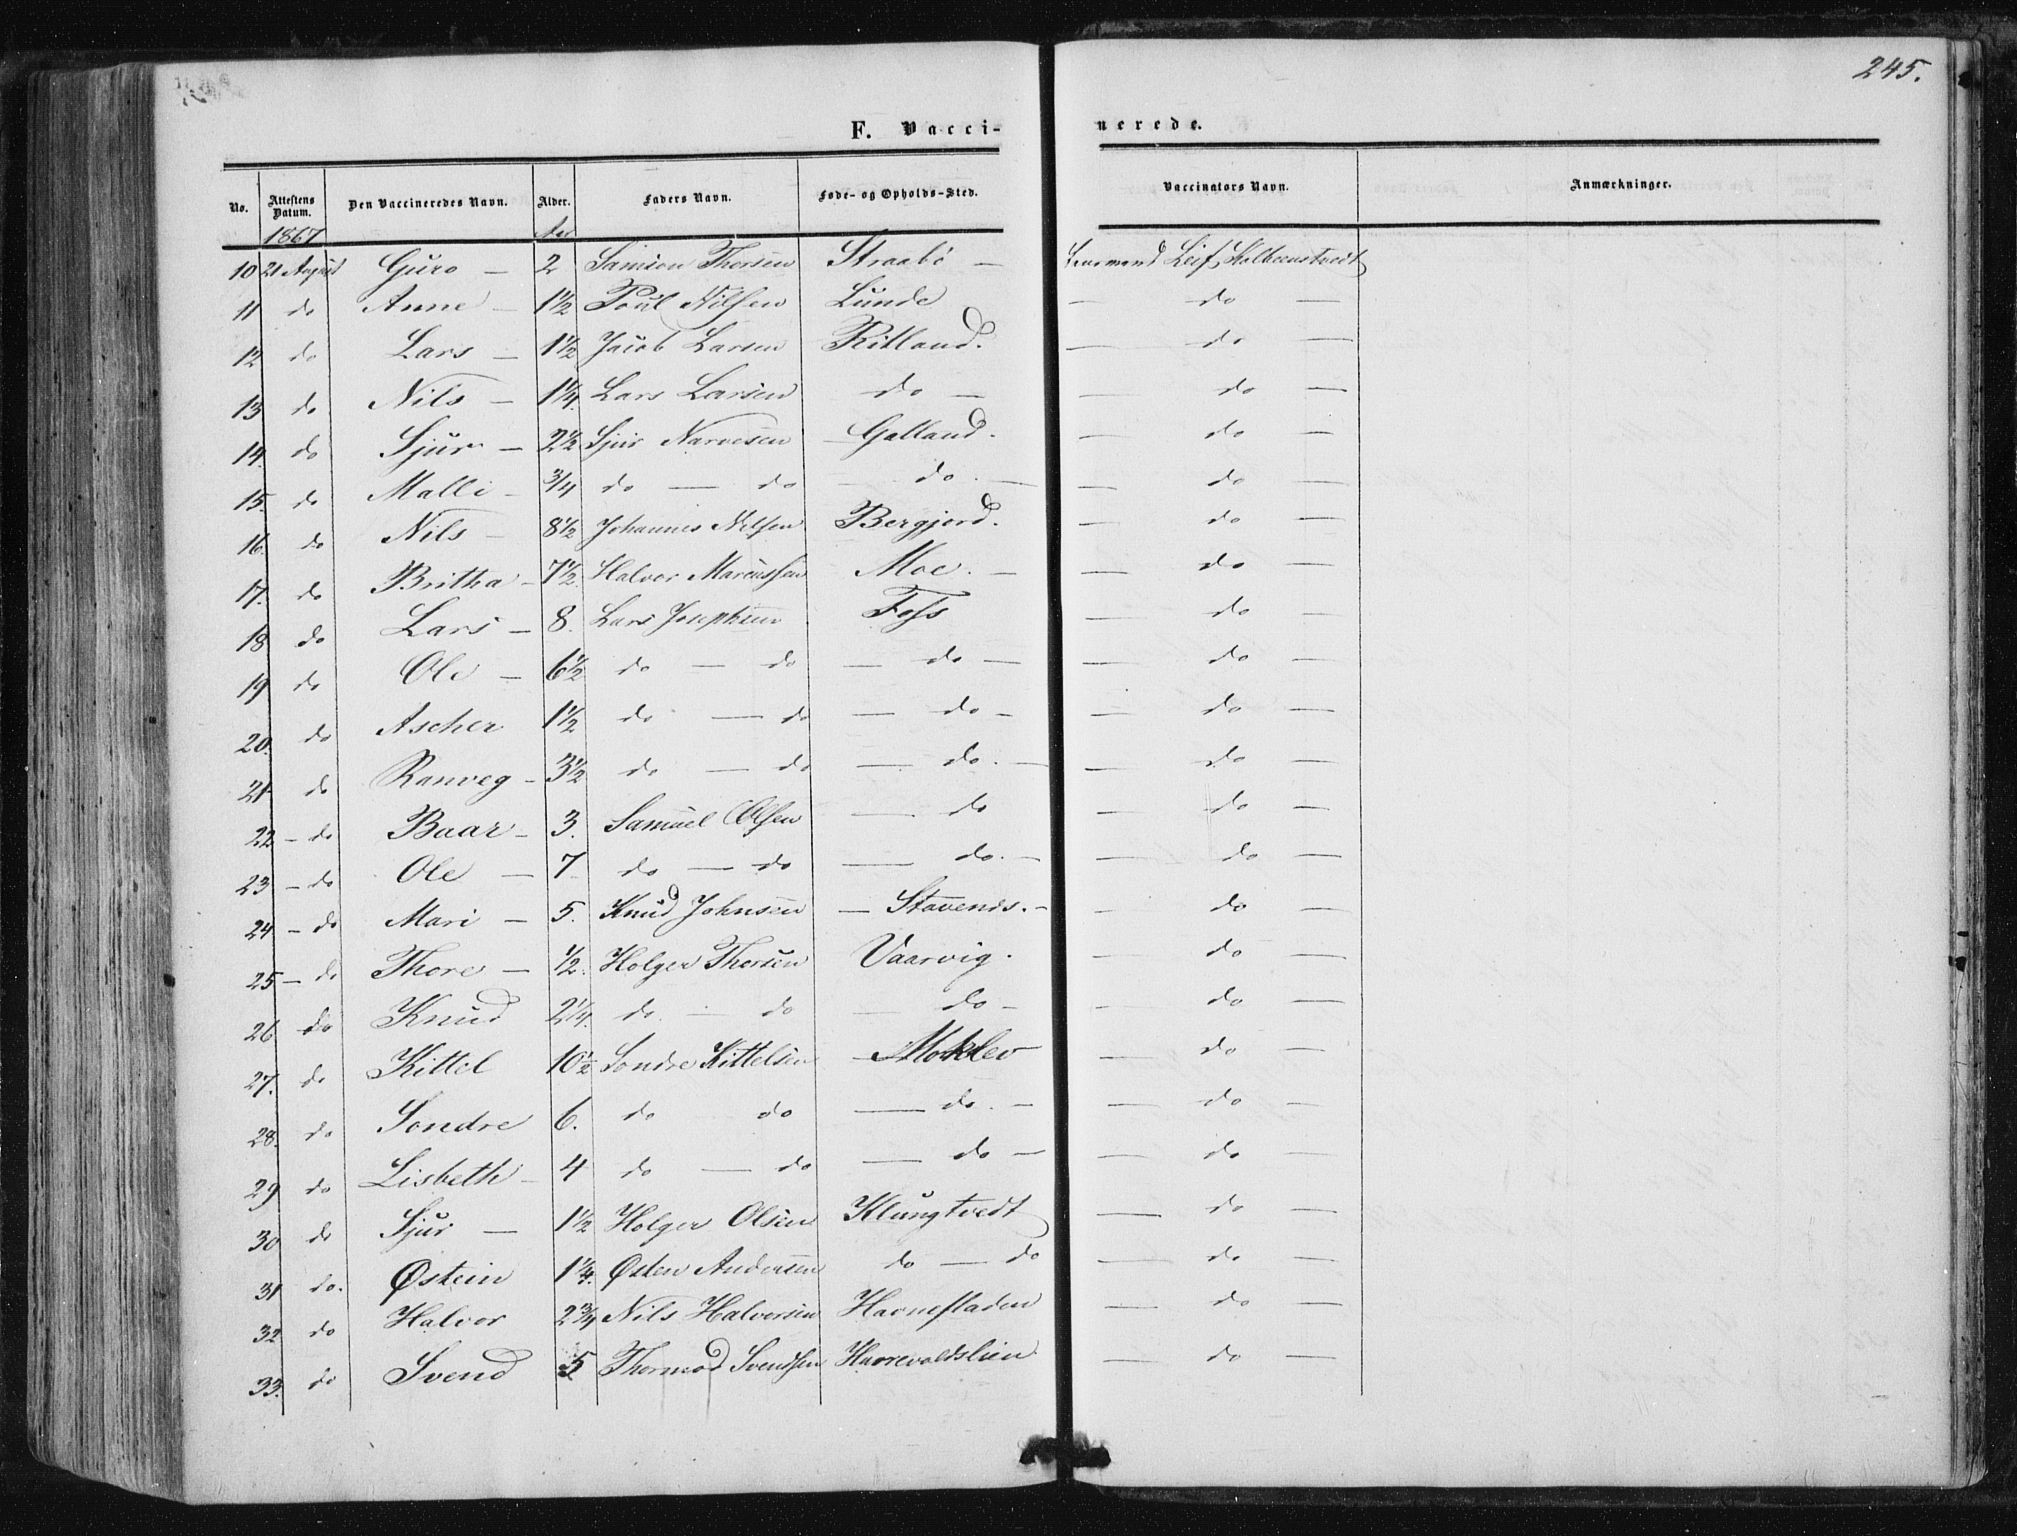 245.
F. Vacci- nerede.
No. Attestens Datum. Den Vaccineredes Navn. Alder. Faders Navn. Føde- og Opholds-Sted. Vaccinators Navn. Anmærkninger.
1867 Aar
10 21 August Guro - 2 Samson Thorsen Straabö - Leif
11 do Anne - 1½ Poul Nilsen Lunde - do -
12 do Lars - 1½ Jacob Larsen Ritland. - do -
13 do Nils - 1¼. Lars Larsen do - - do -
14. do Sjur - 2½ Sjur Narvesen Galland. - do -
15. do Malli - ¾ do - do - do. - - do -
16. do Nils - 8½ Johannes Nilsen Bergjord. - do -
17. do Britha - 7½. Halvor Marcussen Moe. - - do -
18 do Lars - 8. Lars Josephsen Foss - do -
19 do Ole - 6½ do - do - do - - do -
20. do Ascher 1½ do - do - do - - do -
21 do Ranveg - 3½ do - do - do. - - do -
22 - do Baar - 3. Samuel Olsen - do - do -
23 - do Ole - 7 do - do - do. - - do -
24 - do Mari - 5. Knud Johnsen - Stavends. - - do -
25 - do Thore - ½. Holger Thorsen Vaarvig. - do -
26 do Knud 2¼. do. - do - do - - do -
27. do Kittel 10½ Sondre Kittelsen - Moklev - do -
28. do Sondre 6. do do - do. - - do -
29 do Lisbeth - 4 do - do - do - - do -
30 do Sjur - 1½ Holger Olsen Klungtvedt - do -
31 do. Østein 1¼. Østen Andersen do - do - do -
32 do Halvor 2¾ Nils Halvorsen Havnefladen - do -
33. do Svend 5 Thormod Svendsen Haarevoldslien - do -